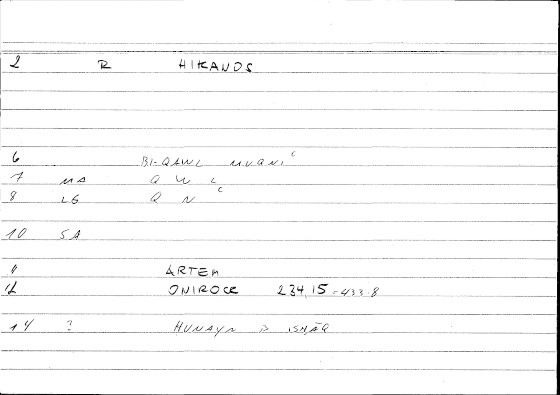 2 R HIKANOS
6 BI-QAWL MUQNIʿ
7 MA Q W L
8 LG Q N ʿ
10 SA
11 ARTEM
12 ONIROCR 234,15 = 433.8
14 ? HUNAYN B ISḤĀQ